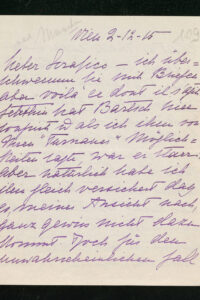 Wien 2-12-15
lieber Serafico – ich über-
schwemme Sie mit Briefen
aber voilà ce dont il s'agit
hat Bartsch hier
u als ich ihm von
Ihrer Möglich-
keiten sagte, war er starr
aber natürlich habe ich
ihm gleich versichert dass
es meiner Ansicht nach
ganz gewiss nicht dazu
kommt. Doch für den
unwahrscheinlichen Fall